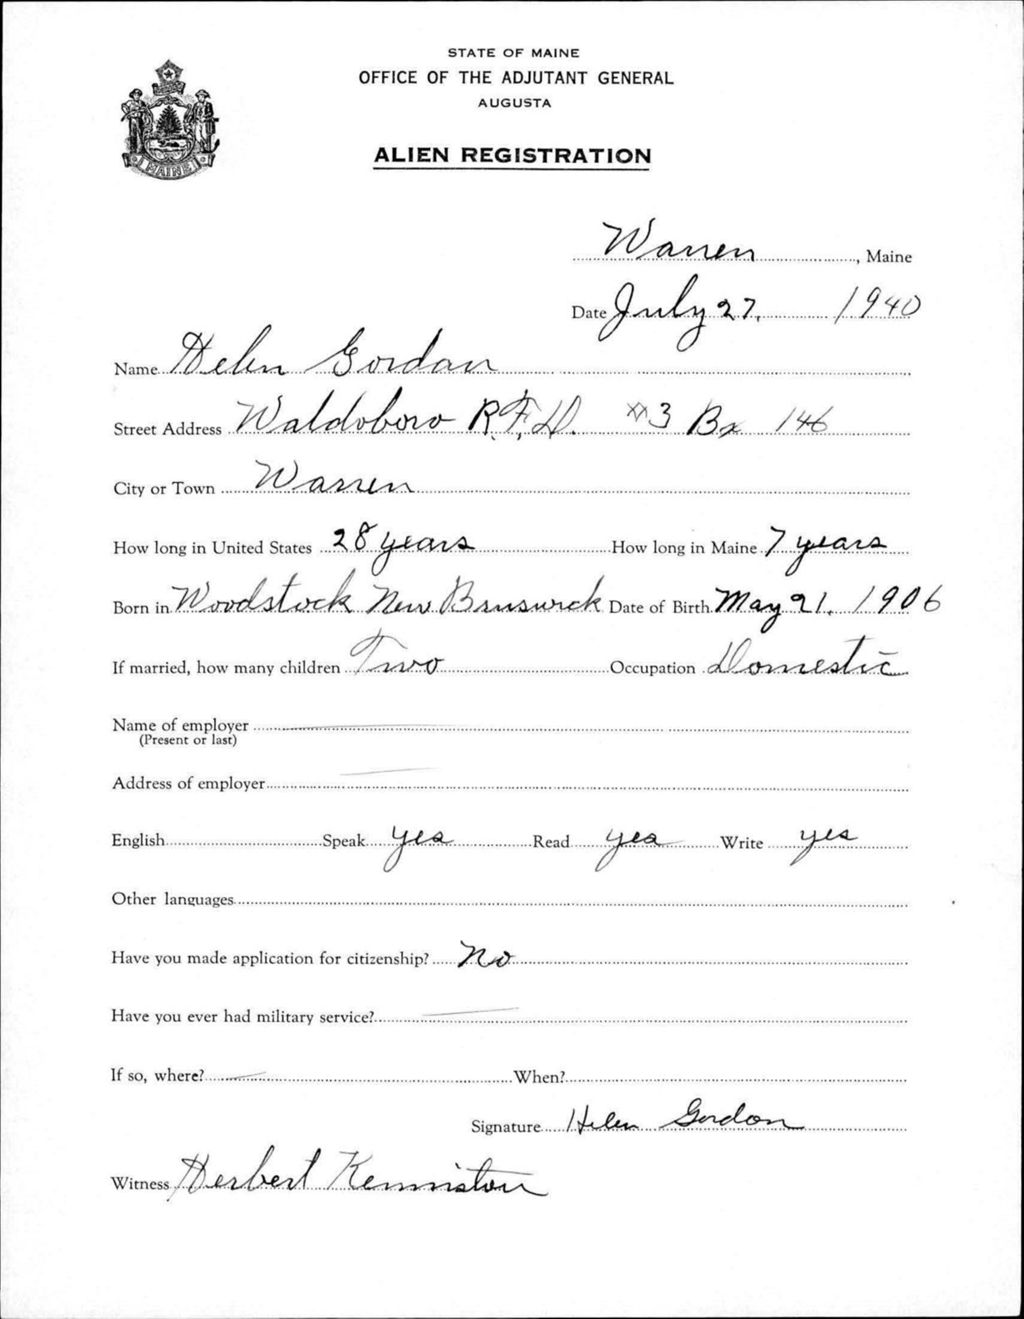 STATE OF MAINE
OFFICE OF THE ADJUTANT GENERAL
AUGUSTA
ALIEN REGISTRATION
MAINE
Warren, Maine
Date July 27, 1940
Name Helen Gordan
Street Address Waldoboro R.F.D. #3 Bx 146
City or Town Warren
How long in United States 28 years How long in Maine 7 years
Born in Woodstock New Brunswick Date of Birth May 21, 1906
If married, how many children Two Occupation Domestic
Name of employer
(Present or last)
Address of employer
English Speak yes Read yes Write yes
Other languages
Have you made application for citizenship? No
Have you ever had military service?
If so, where? When?
Signature Helen Gordon
Witness Herbert Kenniston